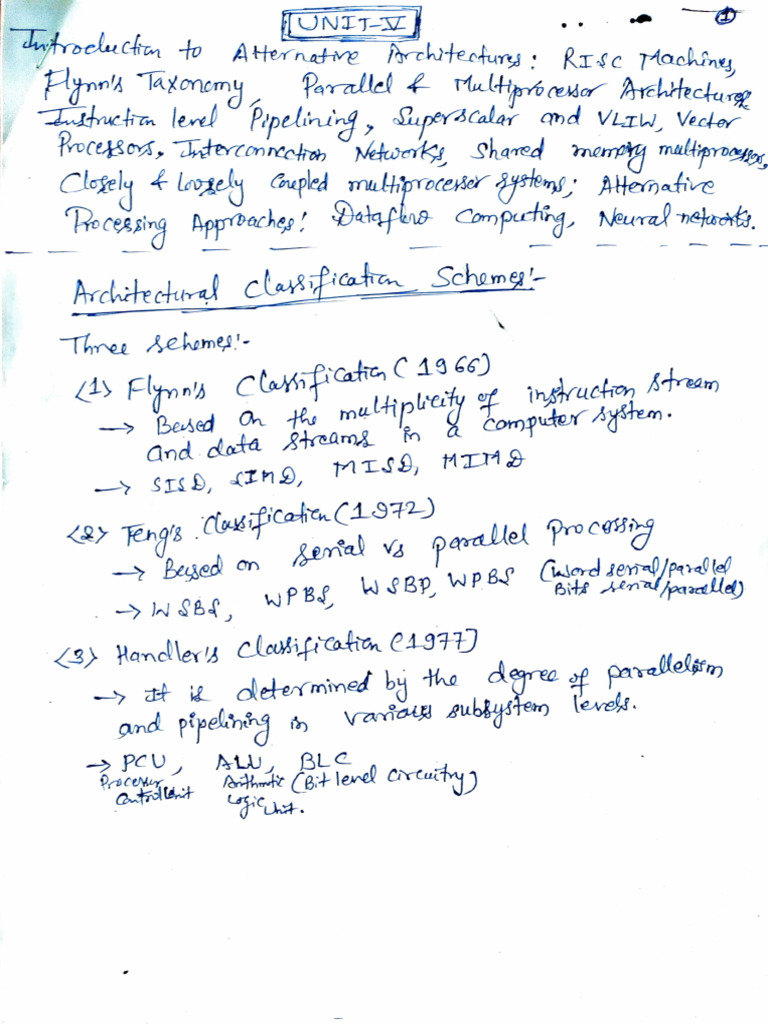 UNIT-V
1
Introduction to Alternative Architectures: RISC Machines,
Flynn's Taxonomy, Parallel & Multiprocessor Architectures
Instruction level Pipelining, Superscalar and VLIW, Vector
Processors, Interconnection Networks, Shared memory multiprocessors,
Closely & Loosely Coupled multiprocessor systems; Alternative
Processing Approaches: Dataflow Computing, Neural networks.
Architectural Classification Schemes:-
Three schemes:-
(1) Flynn's Classification (1966)
→ Based on the multiplicity of instruction stream
and data streams in a computer system.
→ SISD, SIMD, MISD, MIMD
(2) Feng's Classification (1972)
→ Based on serial vs parallel processing
→ WSBS, WPBS, WSBP, WPBS (word serial/parallel
Bits serial/parallel)
(3) Handler's Classification (1977)
→ It is determined by the degree of parallelism
and pipelining in various subsystem levels.
→ PCU, ALU, BLC
Processor Arithmetic (Bit level circuitry)
Control Unit Logic Unit.